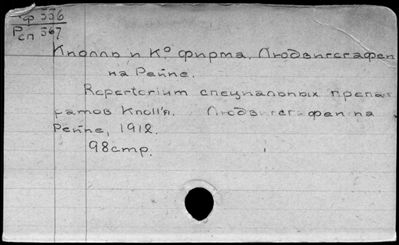 Рф 556
Рсп 567
Кнолль и К° фирма, Людвигсгафен
на Рейне.
Repertorium специальных препа-
ратов Knoll'я. Людвигсгафен на
Рейне, 1912.
98 стр.